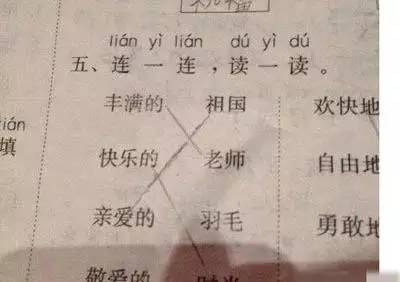 祝福
lián yì lián dú yì dú
五、连一连，读一读。
丰满的 祖国 欢快地
tián
填
快乐的 老师 自由地
亲爱的 羽毛 勇敢地
敬爱的 时光